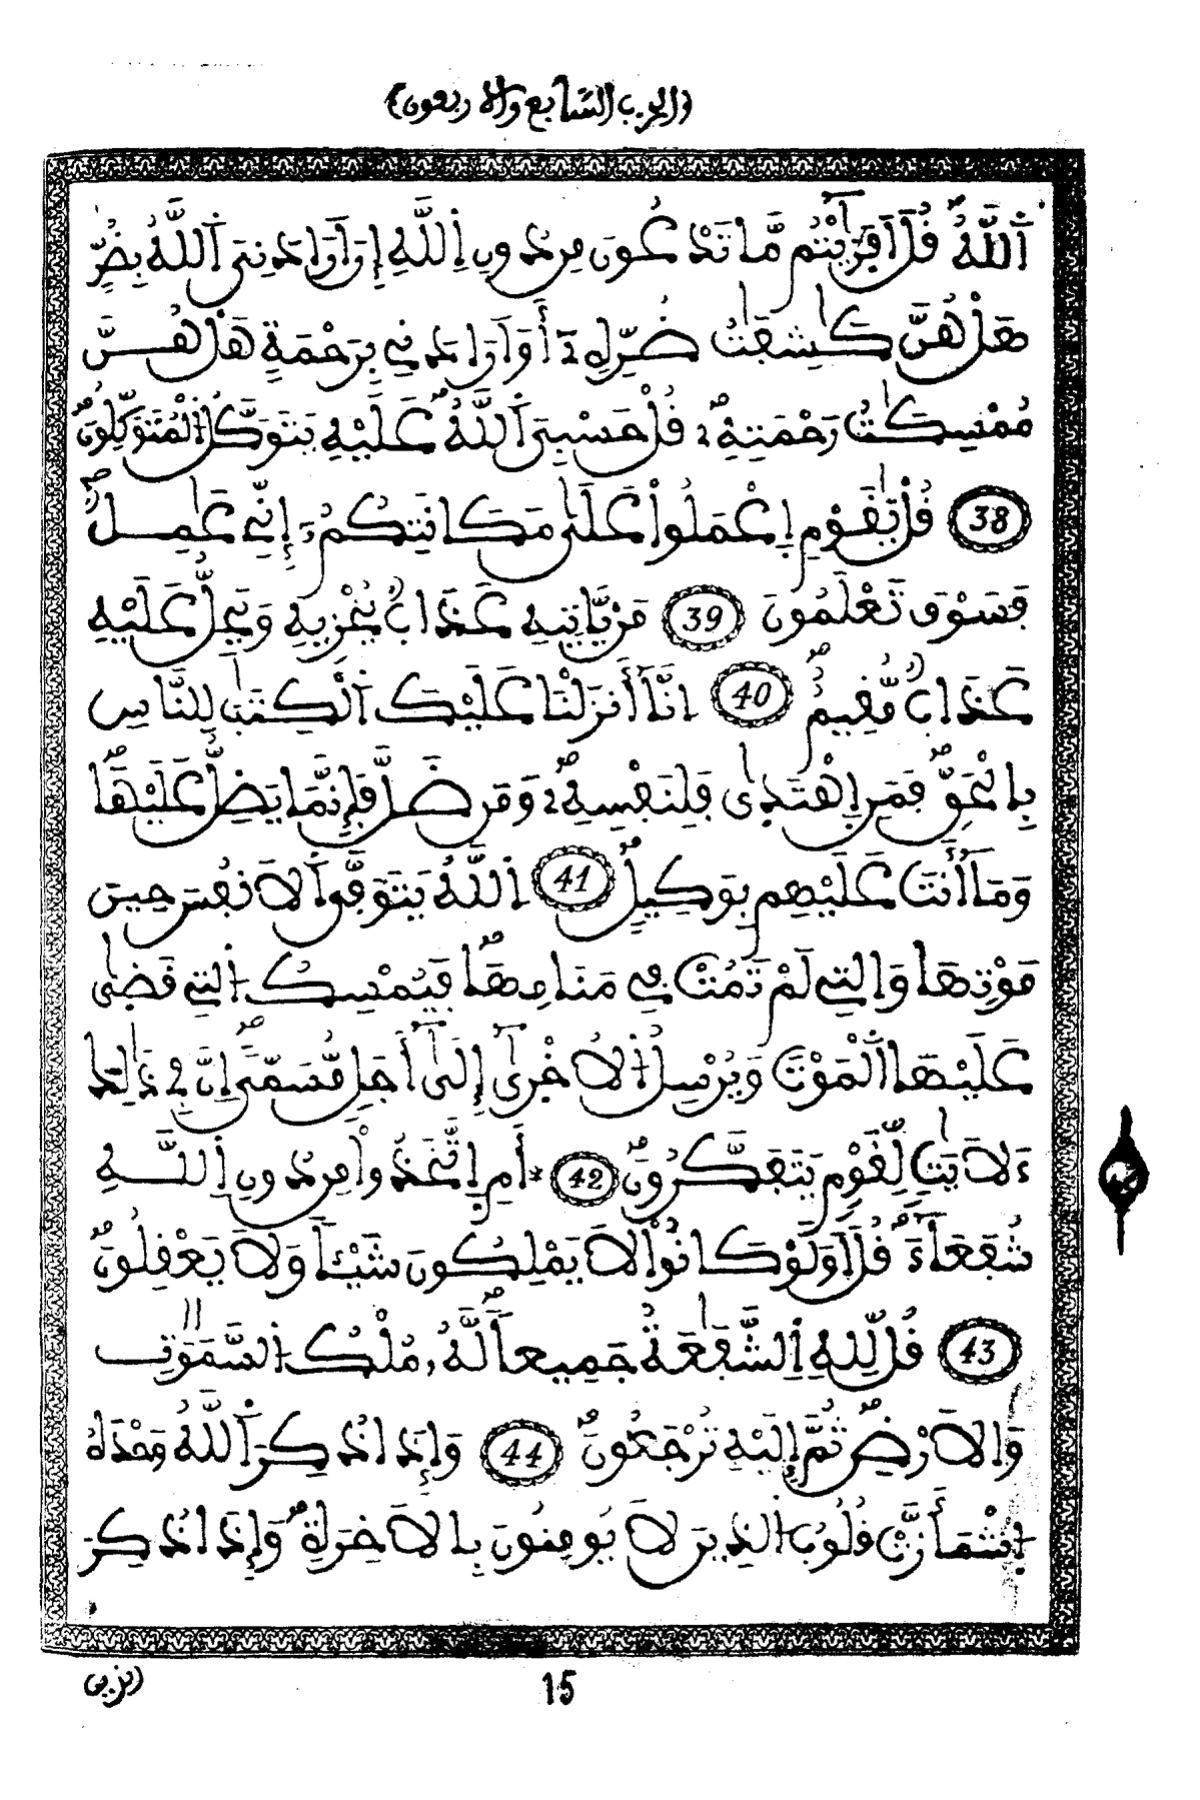 (الحزب السابع والاربعون)
اَللَّهُ قُلَ اَفَرَٰيْتُم مَّا تَدْعُونَ مِن دُونِ اِللَّهِ إِنَ اَرَادَنِيَ اَللَّهُ بِضُرٍّ
هَلْ هُنَّ كَٰشِفَٰتُ ضُرِّهِۦٓ أَوَ اَرَادَنِي بِرَحْمَةٍ هَلْ هُنَّ
مُمْسِكَٰتُ رَحْمَتِهِۦ قُلْ حَسْبِيَ اَللَّهُ عَلَيْهِ يَتَوَكَّلُ اُلْمُتَوَكِّلُونَ
38 قُلْ يَٰقَوْمِ اِعْمَلُواْ عَلَىٰ مَكَانَتِكُمُۥٓ إِنِّي عَٰمِلٌ
فَسَوْفَ تَعْلَمُونَ 39 مَنْ يَّاتِيهِ عَذَابٌ يُخْزِيهِ وَيَحِلُّ عَلَيْهِ
عَذَابٌ مُّقِيمٌ 40 اِنَّآ أَنزَلْنَا عَلَيْكَ اَلْكِتَٰبَ لِلنَّاسِ
بِالْحَقِّ فَمَنِ اِهْتَدٰى فَلِنَفْسِهِۦ وَمَن ضَلَّ فَإِنَّمَا يَضِلُّ عَلَيْهَا
وَمَآ أَنتَ عَلَيْهِم بِوَكِيلٍ 41 اَللَّهُ يَتَوَفَّى اَلَانفُسَ حِينَ
مَوْتِهَا وَالتِي لَمْ تَمُتْ فِي مَنَامِهَا فَيُمْسِكُ اُلتِي قَضٰى
عَلَيْهَا اَلْمَوْتَ وَيُرْسِلُ اُلُاخْرىٰٓ إِلَىٰٓ أَجَلٍ مُّسَمًّى اِنَّ فِي ذَٰلِكَ
ءَلَايَٰتٍ لِّقَوْمٍ يَتَفَكَّرُونَ 42 * أَمِ اِتَّخَذُواْ مِن دُونِ اِللَّهِ
شُفَعَآءَ قُلَ اَوَلَوْ كَانُواْ لَا يَمْلِكُونَ شَيْـٔاً وَلَا يَعْقِلُونَ
43 قُل لِّلهِ اِلشَّفَٰعَةُ جَمِيعاً لَّهُۥ مُلْكُ اُلسَّمَٰوَٰتِ
وَالَارْضِ ثُمَّ إِلَيْهِ تُرْجَعُونَ 44 وَإِذَا ذُكِرَ اَللَّهُ وَحْدَهُ
اُشْمَأَزَّتْ قُلُوبُ اُلذِينَ لَا يُومِنُونَ بِالَاخِرَةِ وَإِذَا ذُكِرَ
15